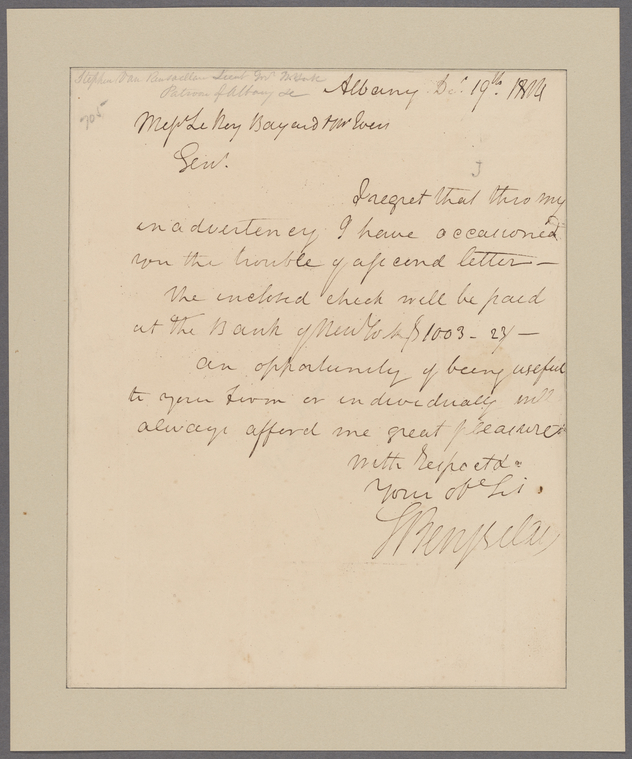 Stephen Van Rensselaer Lieut Gov N York
Patroon of Albany &c
Albany Dec. 19th. 1814
705
Messrs Le Roy Bayard & McEvers
Gent.
I regret that thro my
inadvertency I have occasioned
you the trouble of a second letter —
the inclosed check will be paid
at the Bank of New York $1003-27 —
an opportunity of being useful
to your Firm or individually will
always afford me great pleasure
with Respect
Your obt St
S V Rensselaer